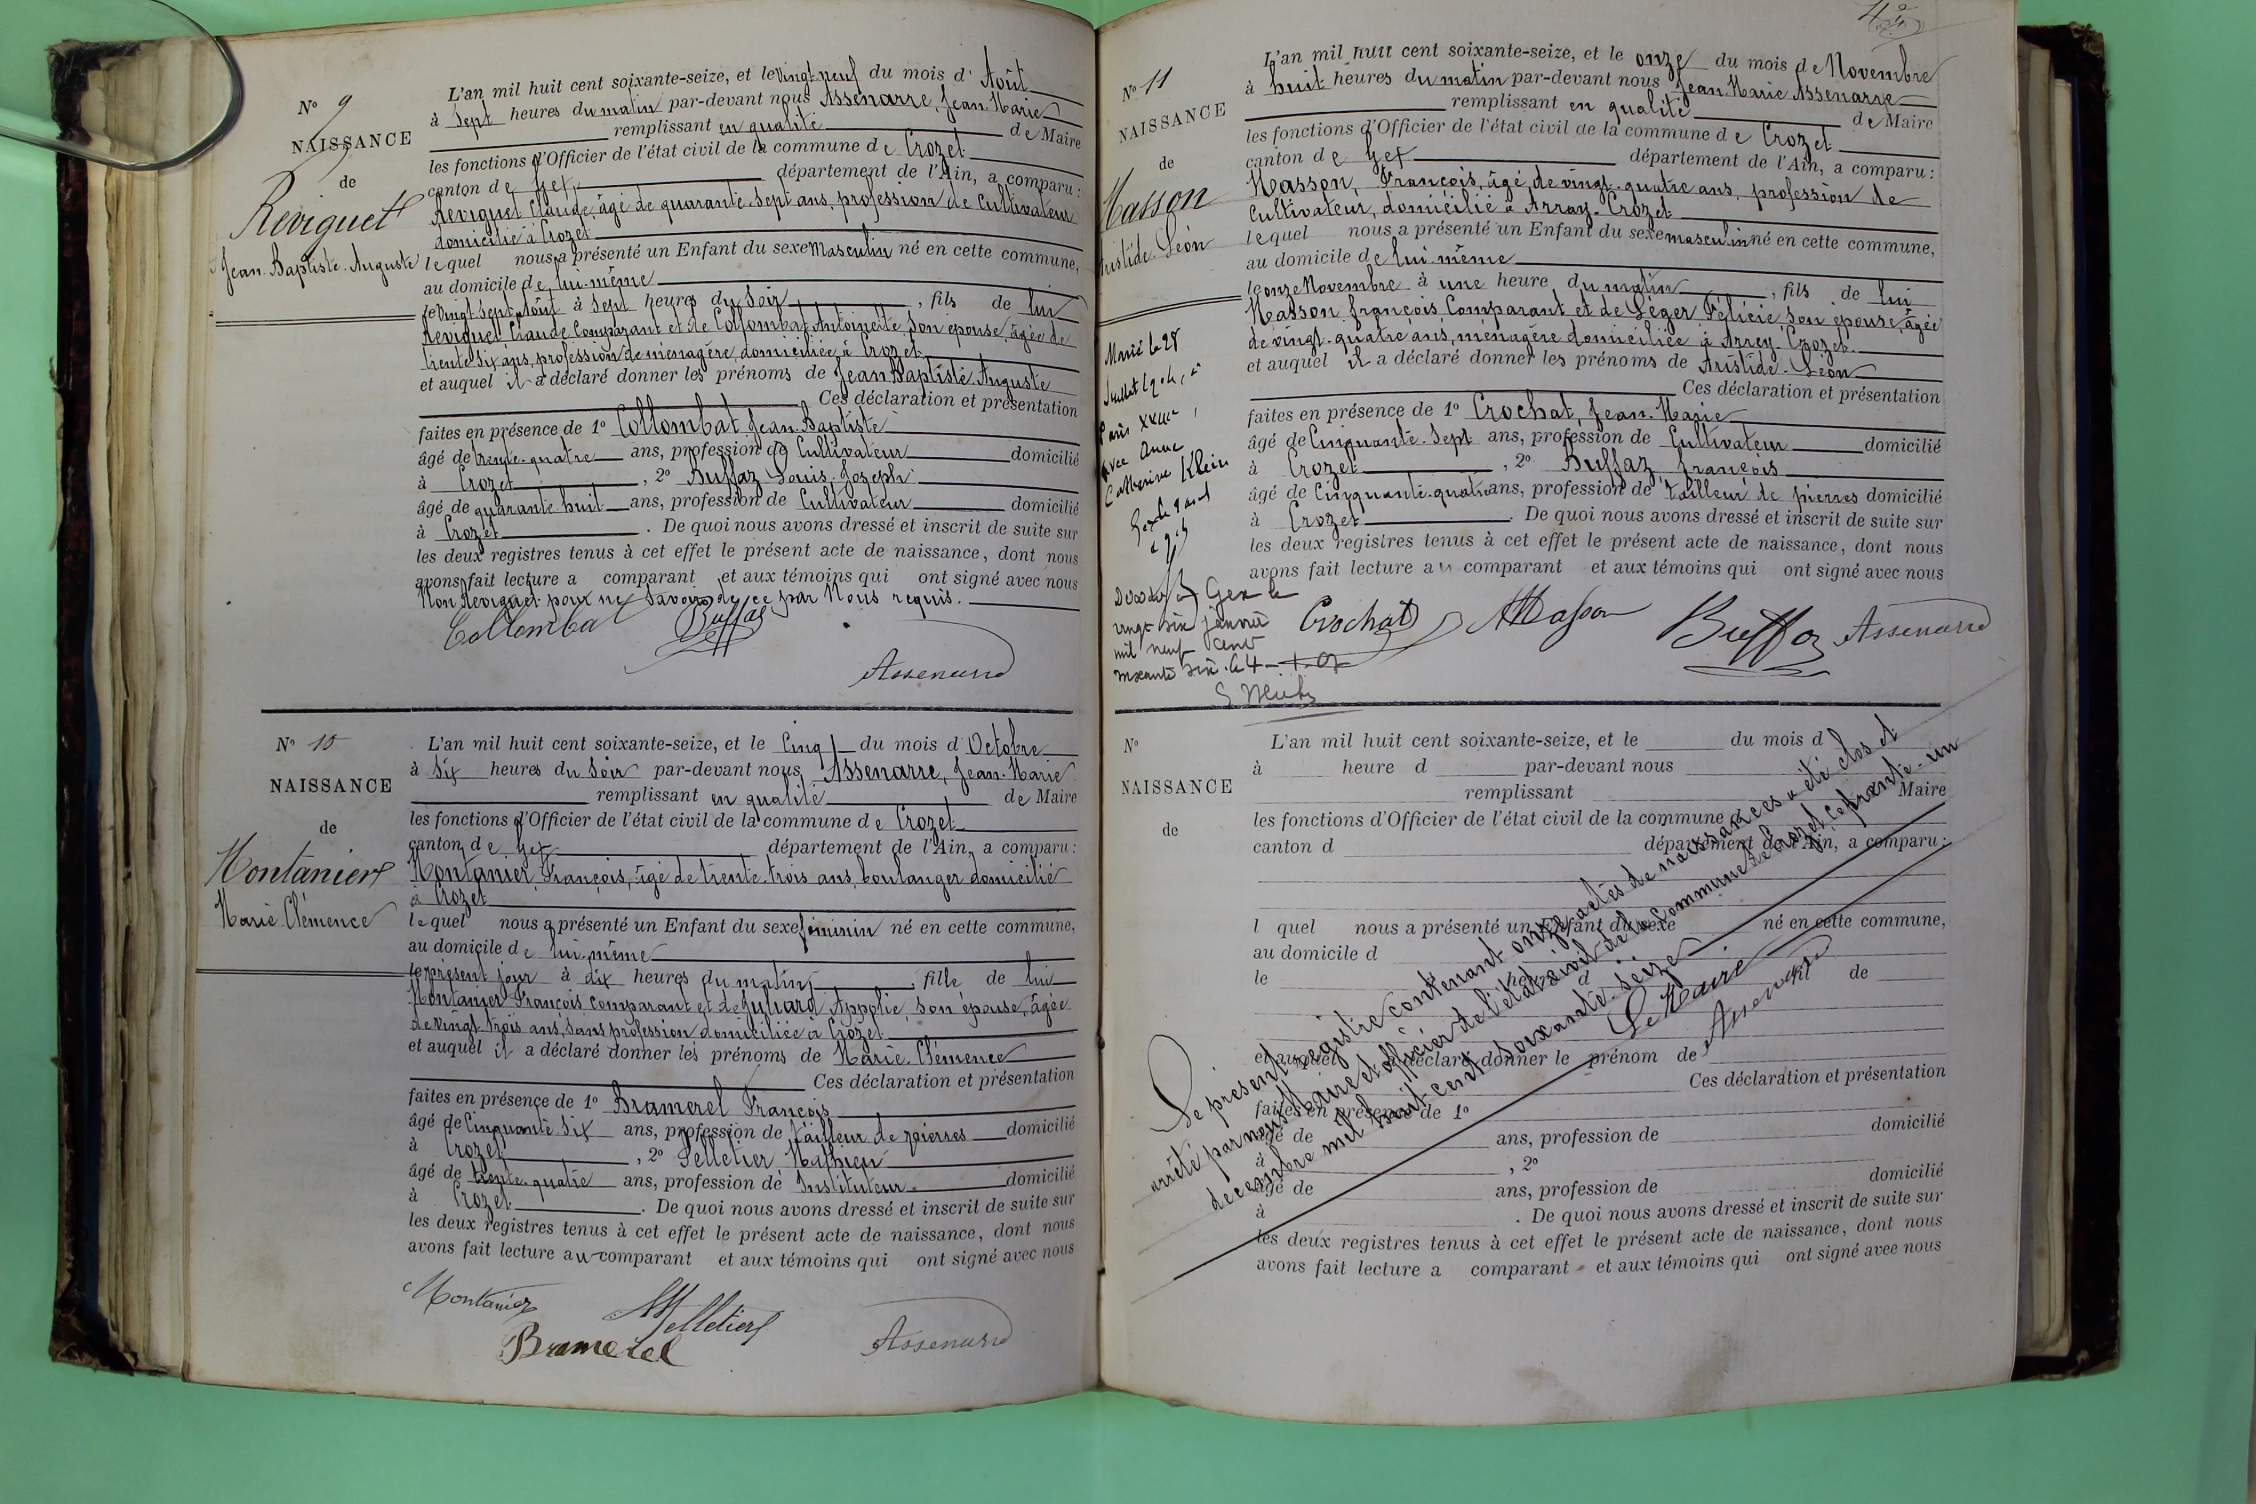 N° 9
NAISSANCE
de
Reviguet
Jean-Baptiste-Auguste
L'an mil huit cent soixante-seize, et le vingt neuf du mois d'Août
à Sept heures du matin par-devant nous Assenarre, Jean-Marie
remplissant en qualité de Maire
les fonctions d'Officier de l'état civil de la commune de Crozet
canton de Gex département de l'Ain, a comparu:
Reviguet Claude, âgé de quarante-sept ans, profession de Cultivateur
domicilié à Crozet
lequel nous a présenté un Enfant du sexe masculin né en cette commune,
au domicile de lui-même
le vingt sept août à Sept heures du Soir, fils de lui
Reviguet Claude Comparant et de Collombat Antoinette, son épouse, âgée de
trente six ans, profession de ménagère, domiciliée à Crozet
et auquel il a déclaré donner les prénoms de Jean Baptiste Auguste
Ces déclaration et présentation
faites en présence de 1° Collombat Jean-Baptiste
âgé de trente-quatre ans, profession de Cultivateur domicilié
à Crozet, 2° Buffaz Louis-Joseph
âgé de quarante-huit ans, profession de Cultivateur domicilié
à Crozet. De quoi nous avons dressé et inscrit de suite sur
les deux registres tenus à cet effet le présent acte de naissance, dont nous
avons fait lecture a comparant et aux témoins qui ont signé avec nous
Non Reviguet pour ne savoir de ce par Nous requis.
Collombat Buffaz
Assenarre
N° 10
NAISSANCE
de
Montanier
Marie Clémence
L'an mil huit cent soixante-seize, et le Cinq du mois d'Octobre
à Six heures du Soir par-devant nous Assenarre, Jean-Marie
remplissant en qualité de Maire
les fonctions d'Officier de l'état civil de la commune de Crozet
canton de Gex département de l'Ain, a comparu:
Montanier François, âgé de trente-trois ans, boulanger domicilié
à Crozet
lequel nous a présenté un Enfant du sexe féminin né en cette commune,
au domicile de lui-même
le présent jour à dix heures du matin, fille de lui
Montanier François comparant et de Juliard Appolie, son épouse, âgée
de vingt-trois ans, sans profession domiciliée à Crozet
et auquel il a déclaré donner les prénoms de Marie Clémence
Ces déclaration et présentation
faites en présence de 1° Bramerel François
âgé de Cinquante-Six ans, profession de tailleur de pierres domicilié
à Crozet, 2° Pelletier Mathieu
âgé de trente-quatre ans, profession de Instituteur domicilié
à Crozet. De quoi nous avons dressé et inscrit de suite sur
les deux registres tenus à cet effet le présent acte de naissance, dont nous
avons fait lecture au comparant et aux témoins qui ont signé avec nous
Montanier Pelletier
Bramerel Assenarre
N° 11
NAISSANCE
de
Masson
Aristide-Léon
Marié le 28
Juillet 1904, à
Paris XXIIIe,
avec Anne
Catherine Klein
Décédé à Gex le
vingt six janvier
mil neuf cent
L'an mil huit cent soixante-seize, et le onze du mois de Novembre
à huit heures du matin par-devant nous Jean-Marie Assenarre
remplissant en qualité de Maire
les fonctions d'Officier de l'état civil de la commune de Crozet
canton de Gex département de l'Ain, a comparu:
Masson, François, âgé de vingt-quatre ans, profession de
Cultivateur, domicilié à Array-Crozet
lequel nous a présenté un Enfant du sexe masculin né en cette commune,
au domicile de lui-même
le onze Novembre à une heure du matin, fils de lui
Masson françois Comparant et de Léger Félicie son épouse, âgée
de vingt-quatre ans, ménagère domiciliée à Arrey-Crozet
et auquel il a déclaré donner les prénoms de Aristide-Léon
Ces déclaration et présentation
faites en présence de 1° Crochat, Jean-Marie
âgé de Cinquante-Sept ans, profession de Cultivateur domicilié
à Crozet, 2° Buffaz, françois
âgé de Cinquante-quatre ans, profession de tailleur de pierres domicilié
à Crozet. De quoi nous avons dressé et inscrit de suite sur
les deux registres tenus à cet effet le présent acte de naissance, dont nous
avons fait lecture au comparant et aux témoins qui ont signé avec nous
Crochat Masson Buffaz Assenarre
N°
NAISSANCE
de
L'an mil huit cent soixante-seize, et le du mois d
à heure d par-devant nous
remplissant Maire
les fonctions d'Officier de l'état civil de la commune
canton d département de l'Ain, a comparu:
l quel nous a présenté un Enfant du sexe né en cette commune,
au domicile d
le heure d fil de
et auquel a déclaré donner le prénom de
Ces déclaration et présentation
faites en présence de 1°
âgé de ans, profession de domicilié
à , 2°
âgé de ans, profession de domicilié
à . De quoi nous avons dressé et inscrit de suite sur
les deux registres tenus à cet effet le présent acte de naissance, dont nous
avons fait lecture a comparant et aux témoins qui ont signé avec nous
Le présent registre contenant onze actes de naissances a été clos et
arrêté par nous Maire et officier de l'état civil de la commune de Crozet ce trente-un
décembre mil huit cent soixante seize
Le Maire
Assenarre